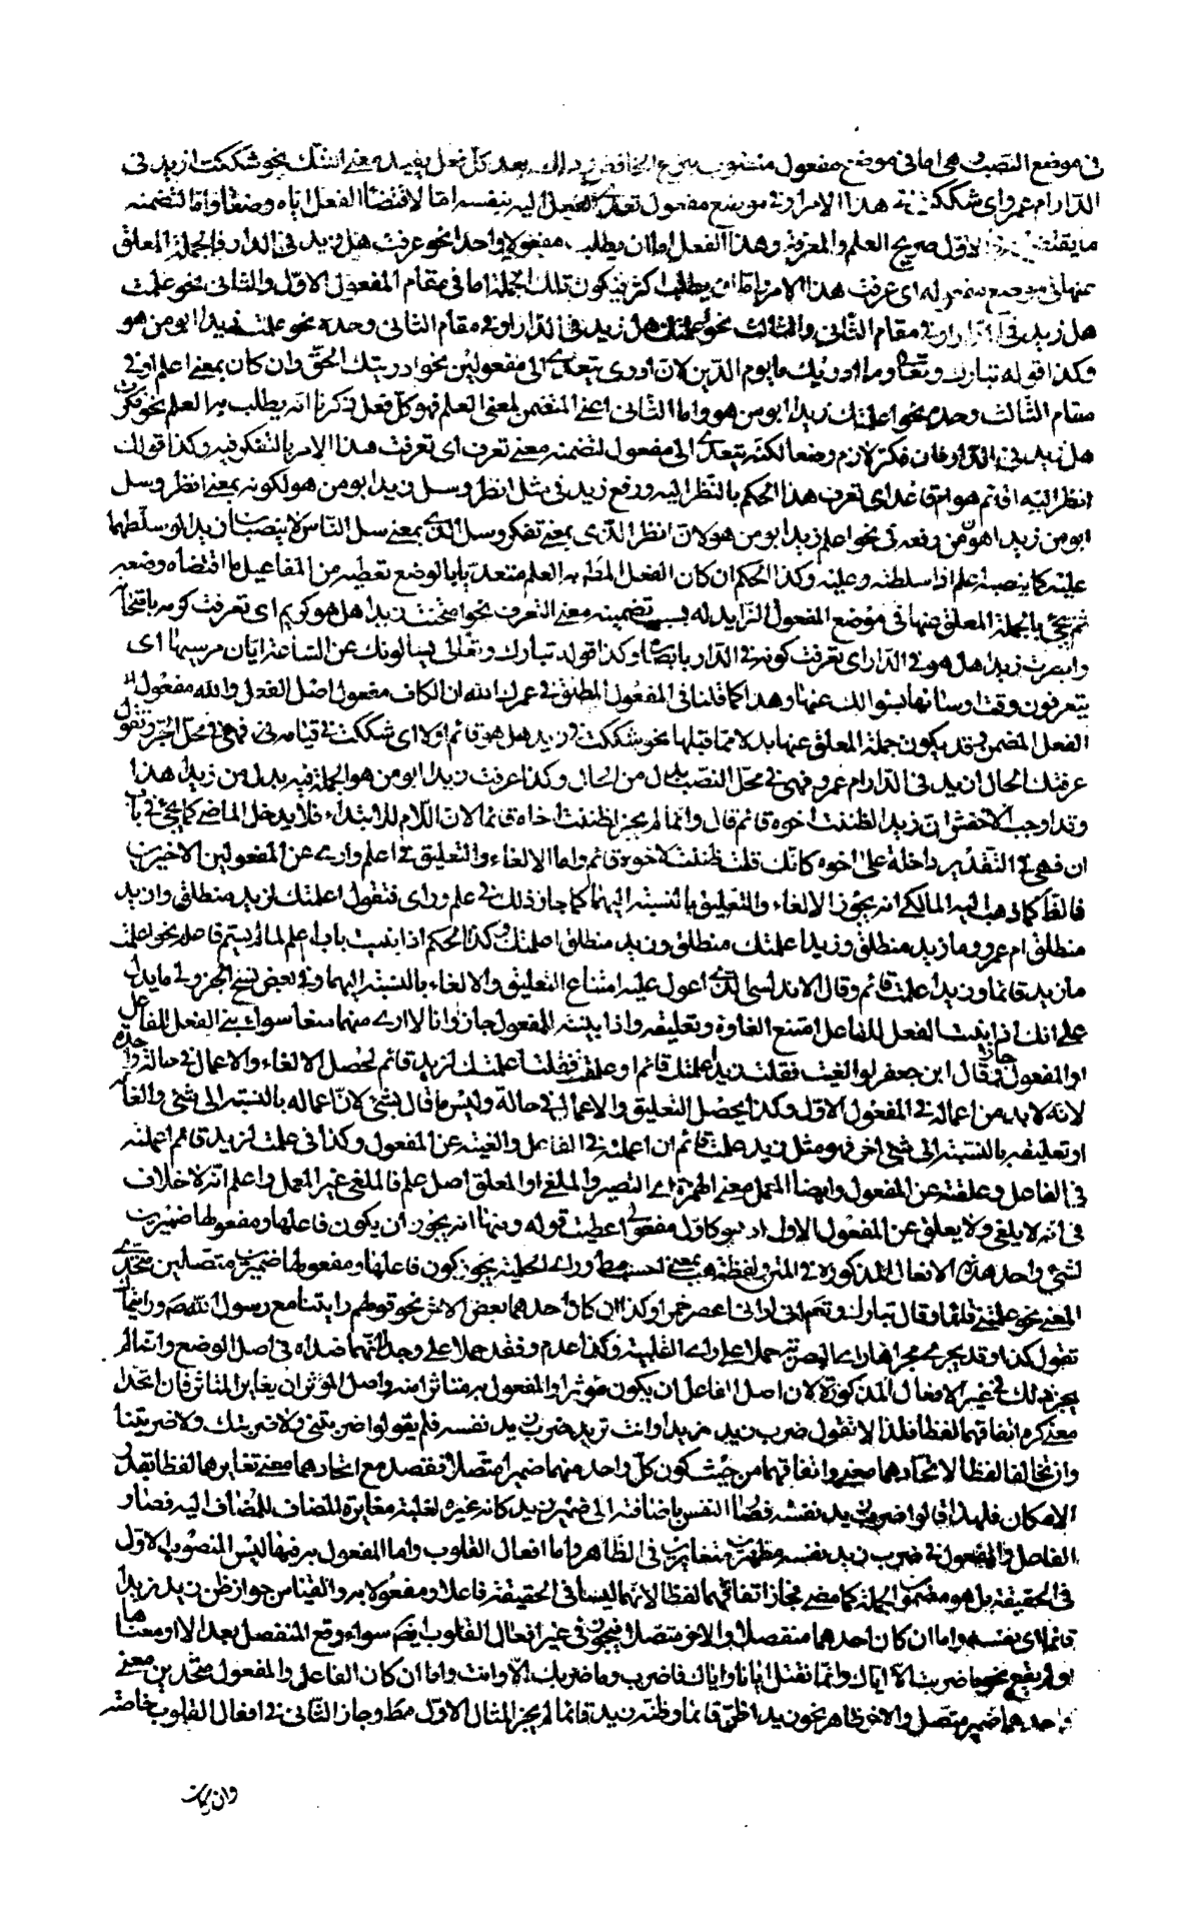 في موضع النصب وهي اما في موضع مفعول منصوب بنزع الخافض وذلك بعد كل فعل يفيد معنى الشك نحو شككت ازيد في
الدار ام عمرو اي شككت في هذا الامر او في موضع مفعول تعدى الفعل اليه بنفسه اما لاقتضاء الفعل اياه وضعا واما لتضمنه
ما يقتضيه الاول صريح العلم والمعرفة وهذا الفعل اما ان يطلب مفعولا واحدا نحو عرفت هل زيد في الدار فالجملة المعلق
عنها في موضع مفعوله اي عرفت هذا الامر واما ان يطلب اكثر فيكون تلك الجملة اما في مقام المفعول الاول والثاني نحو علمت
هل زيد في الدار او في مقام الثاني والثالث نحو اعلمتك هل زيد في الدار او في مقام الثاني وحده نحو علمت زيدا ابو من هو
وكذا قوله تبارك وتعالى وما ادريك ما يوم الدين لان ادرى يتعدى الى مفعولين نحو ادريتك الحق وان كان بمعنى اعلم او في
مقام الثالث وحده نحو اعلمتك زيدا ابو من هو واما الثاني اعني المتضمن لمعنى العلم فهو كل فعل ذكرنا انه يطلب به العلم نحو فكرت
هل زيد في الدار فان فكر لازم وضعا لكنه يتعدى الى مفعول لتضمنه معنى تعرف اي تعرفت هذا الامر بالتفكر فيه وكذا قولك
انظر اليه اقائم هو ام قاعد اي تعرف هذا الحكم بالنظر اليه ورفع زيد في مثل انظر وسل زيد ابو من هو لكونه بمعنى انظر وسل
ابو من زيد اهون من رفعه في نحو اعلم زيد ابو من هو لان انظر الذي بمعنى تفكر وسل الذي بمعنى سل الناس لا ينصبان زيدا لو سلطتهما
عليه كما ينصبه علم اذا سلطته وعليه وكذا الحكم ان كان الفعل المطلوب به العلم متعديا بالوضع تعطيه من المفاعيل ما اقتضاه وضعه
ثم تجئ بالجملة المعلق عنها في موضع المفعول الزايد له بسبب تضمينه معنى التعرف نحو امتحنت زيدا هل هو كريم اي تعرفت كرمه بامتحانه
وابصرت زيدا هل هو في الدار اي تعرفت كونه في الدار بابصاره وكذا قوله تبارك وتعالى يسالونك عن الساعة ايان مرسيها اي
يتعرفون وقت ارسائها بسؤالك عنها وهذا كما قلنا في المفعول المطلق في عمرك الله ان الكاف مفعول اصل الفعل والله مفعول
الفعل المضمن وقد يكون جملة المعلق عنها بدلا مما قبلها نحو شككت في زيد هل هو قائم اولا اي شككت في قيامه فهي في محل الجر وتقول
عرفتك الحال ازيد في الدار ام عمرو فهي في محل النصب بدل من الحال وكذا عرفت زيدا ابو من هو الجملة فيه بدل من زيدا هذا
وقد اوجب الاخفش ان زيدا لظننت اخوه قائم قال وانما لم يجز لظننت اخاه قائما لان اللام للابتداء فلا يدخل الماضي كما يجئ في باب
ان فهي في التقدير داخلة على اخوه كانك قلت ظننت لاخوه قائم واما الالغاء والتعليق في اعلم وارى عن المفعولين الاخيرين
فالظاهر كما ذهب اليه المالكي انه يجوز الالغاء والتعليق بالنسبة اليهما كما جاز ذلك في علم وراى فتقول اعلمتك لزيد منطلق وازيد
منطلق ام عمرو وما زيد منطلق وزيد اعلمتك منطلق وزيد منطلق اعلمتك وكذا الحكم اذا بنيت باب اعلم لما لم يسم فاعله نحو اعلمت
ما زيد قائما وزيد اعلمت قائم وقال الاندلسي الذي اعول عليه امتناع التعليق والالغاء بالنسبة اليهما وفي بعض نسخ الجزولي ما يدل
على انك اذا بنيت الفعل للفاعل امتنع الغاؤه وتعليقه واذا بنيته للمفعول جاز وانا لا ارى منهما منعا سواء بني الفعل للفاعل
او المفعول وقال ابن جعفر لو الغيت فقلت زيد اعلمتك قائم او علقت فقلت اعلمتك لزيد قائم لحصل الالغاء والاعمال في حالة واحدة
لانه لابد من اعماله في المفعول الاول وكذا يحصل التعليق والاعمال في حالة وليس ما قال بشئ لان اعماله بالنسبة الى شئ والغاءه
او تعليقه بالنسبة الى شئ اخر فهو مثل زيد علمت قائم اعملته في الفاعل والغيته عن المفعول وكذا في علمت لزيد قائم اعملته
في الفاعل وعلقته عن المفعول وايضا المعمل معنى الهمزة اي التصيير والملغى او المعلق اصل علم فالملغى غير المعمل واعلم انه لا خلاف
في انه لا يلغى ولا يعلق عن المفعول الاول اذ هو كاول مفعولي اعطيت قوله ومنها انه يجوز ان يكون فاعلها ومفعولها ضميرين
لشئ واحد هذه الافعال المذكورة في المتن ولفظة هب بمعنى احسب وراى الحلمية يجوز كون فاعلها ومفعولها ضميرين متصلين متحدي
المعنى نحو علمتني قائما وقال تبارك وتعالى اني اراني اعصر خمرا وكذا ان كان احدهما بعض الاخر نحو قولهم رايتنا مع رسول الله صم ورايتماك
تقول كذا وقد يجرى مجراها راى البصرية حملا على راى القلبية وكذا عدم وفقد حملا على وجد لانهما ضداه في اصل الوضع وانما لم
يجز ذلك في غير الافعال المذكورة لان اصل الفاعل ان يكون مؤثرا والمفعول به متاثرا منه واصل المؤثر ان يغاير المتاثر فان اتحدا
معنى كره اتفاقهما لفظا فلذا لا تقول ضرب زيد زيدا وانت تريد ضرب زيد نفسه فلم يقولوا ضربتني ولا ضربتك ولا ضربتنا
وان تخالفا لفظا لاتحادهما معنى واتفاقهما من حيث كون كل واحد منهما ضميرا متصلا فقصد مع اتحادهما معنى تغايرهما لفظا بقدر
الامكان فلهذا قالوا ضرب زيد نفسه فصار النفس باضافته الى ضمير زيد كانه غيره لغلبة مغايرة المضاف للمضاف اليه فصار
الفاعل والمفعول في ضرب زيد نفسه مظهرين متغايرين في الظاهر واما افعال القلوب واما المفعول به فيها ليس المنصوب الاول
في الحقيقة بل هو مضمون الجملة كما مضى فجاز اتفاقهما لفظا لانهما ليسا في الحقيقة فاعلا ومفعولا به والقياس جواز ظن زيد زيدا
قائما اي نفسه واما ان كان احدهما منفصلا والاخر متصلا فيجوز في غير افعال القلوب ايضا سواء وقع المنفصل بعد الا او معناها
او لم يقع نحو ما ضربت الا اياك وانما نقتل ايانا واياك فاضرب وما ضربك الا انت واما ان كان الفاعل والمفعول متحدين معنى
واحدهما ضمير متصل والاخر ظاهر نحو زيد اظن قائما وظنه زيد قائما لم يجز المثال الاول مط وجاز الثاني في افعال القلوب خاصة
وان كان